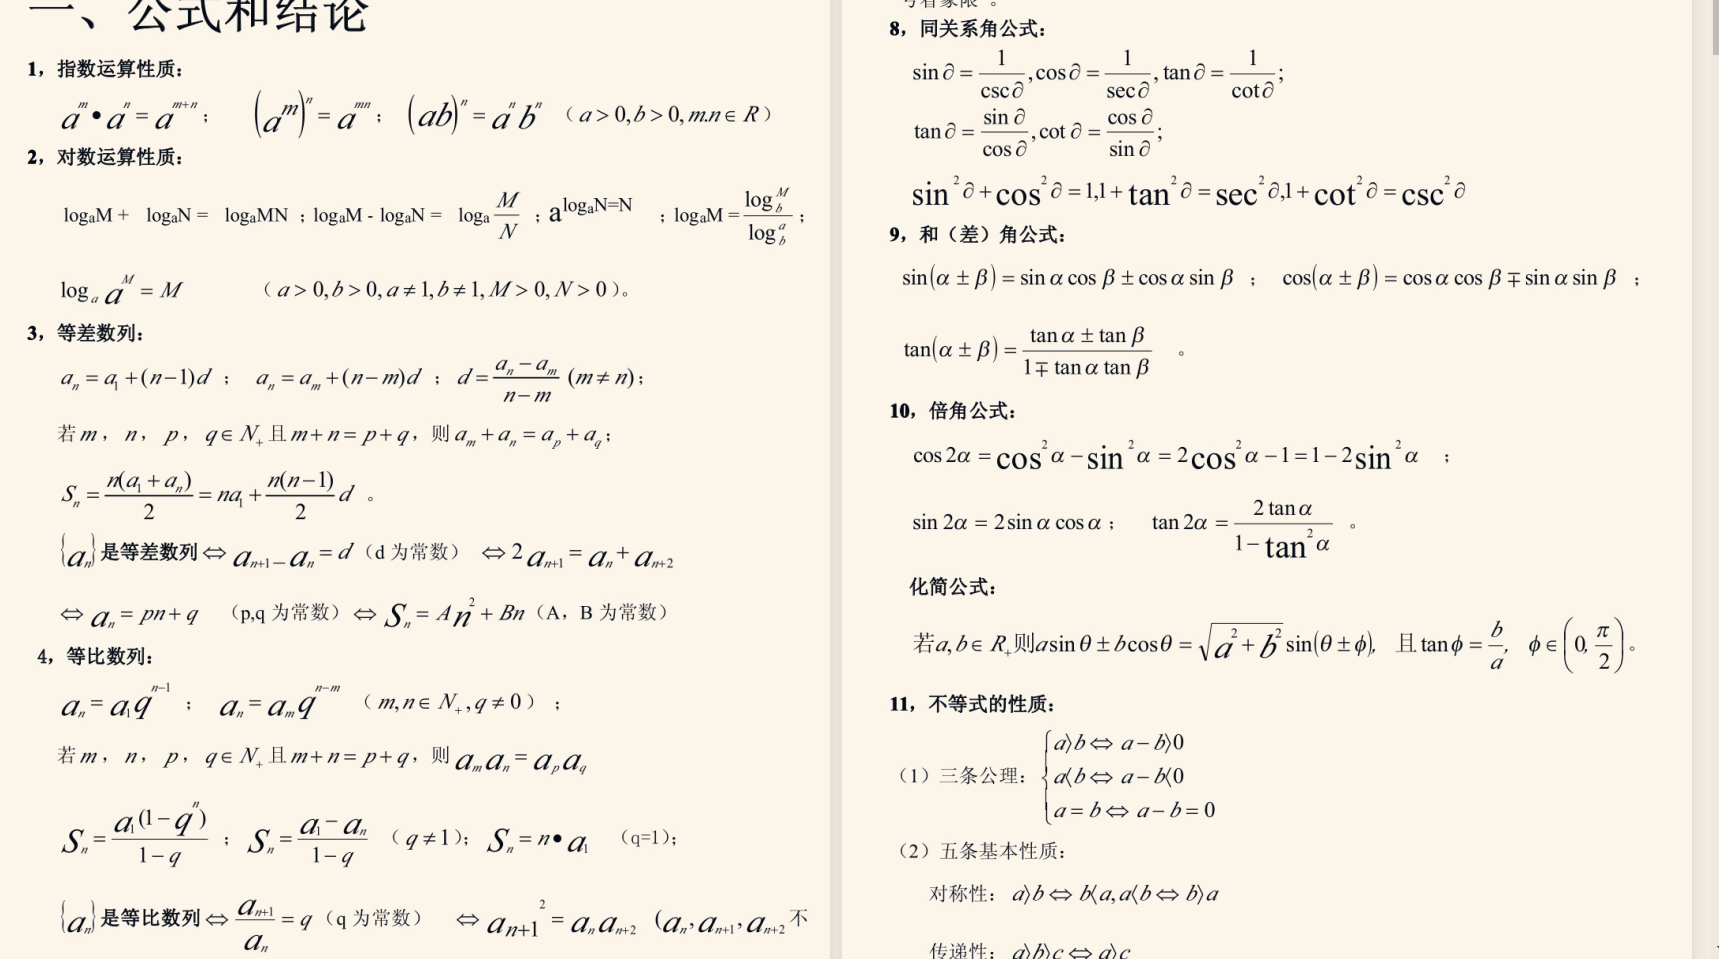 一、公式和结论
1，指数运算性质：
a^m • a^n = a^{m+n}； (a^m)^n = a^{mn}； (ab)^n = a^n b^n （a > 0, b > 0, m.n ∈ R）
2，对数运算性质：
logaM + logaN = logaMN ；logaM - logaN = loga M/N ；a^{logaN=N} ；logaM = log_b^M / log_b^a ；
log_a a^M = M （a > 0, b > 0, a ≠ 1, b ≠ 1, M > 0, N > 0）。
3，等差数列：
a_n = a_1 + (n−1)d ； a_n = a_m + (n−m)d ；d = (a_n − a_m)/(n − m) (m ≠ n)；
若 m，n，p，q ∈ N_+ 且 m + n = p + q，则 a_m + a_n = a_p + a_q；
S_n = n(a_1 + a_n)/2 = na_1 + n(n−1)/2 d 。
{a_n} 是等差数列 ⇔ a_{n+1} − a_n = d（d 为常数） ⇔ 2 a_{n+1} = a_n + a_{n+2}
⇔ a_n = pn + q （p,q 为常数）⇔ S_n = A n^2 + Bn（A，B 为常数）
4，等比数列：
a_n = a_1 q^{n−1} ； a_n = a_m q^{n−m} （m, n ∈ N_+, q ≠ 0）；
若 m，n，p，q ∈ N_+ 且 m + n = p + q，则 a_m a_n = a_p a_q
S_n = a_1(1 − q^n)/(1 − q) ；S_n = (a_1 − a_n)/(1 − q) （q ≠ 1）；S_n = n • a_1 （q=1）；
{a_n} 是等比数列 ⇔ a_{n+1}/a_n = q（q 为常数） ⇔ a_{n+1}^2 = a_n a_{n+2} (a_n, a_{n+1}, a_{n+2} 不
8，同关系角公式：
sin ∂ = 1/csc ∂, cos ∂ = 1/sec ∂, tan ∂ = 1/cot ∂;
tan ∂ = sin ∂/cos ∂, cot ∂ = cos ∂/sin ∂;
sin^2 ∂ + cos^2 ∂ = 1,1 + tan^2 ∂ = sec^2 ∂,1 + cot^2 ∂ = csc^2 ∂
9，和（差）角公式：
sin(α ± β) = sin α cos β ± cos α sin β ； cos(α ± β) = cos α cos β ∓ sin α sin β ；
tan(α ± β) = (tan α ± tan β)/(1 ∓ tan α tan β) 。
10，倍角公式：
cos 2α = cos^2 α − sin^2 α = 2 cos^2 α − 1 = 1 − 2 sin^2 α ；
sin 2α = 2 sin α cos α ； tan 2α = 2 tan α/(1 − tan^2 α) 。
化简公式：
若 a, b ∈ R_+ 则 a sin θ ± b cos θ = √(a^2 + b^2) sin(θ ± ϕ)， 且 tan ϕ = b/a， ϕ ∈ (0, π/2)。
11，不等式的性质：
（1）三条公理：{ a⟩b ⇔ a − b⟩0
a⟨b ⇔ a − b⟨0
a = b ⇔ a − b = 0
（2）五条基本性质：
对称性： a⟩b ⇔ b⟨a, a⟨b ⇔ b⟩a
传递性： a⟩b⟩c ⇔ a⟩c